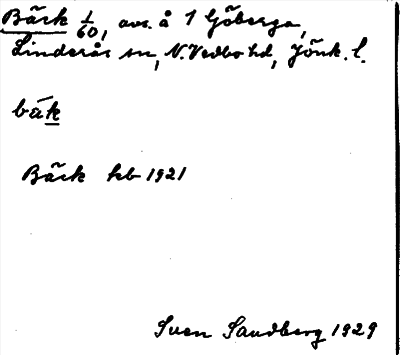 Bäck 1/60, avs. å 1 Göberga,
Linderås sn, N. Vedbo hd, Jönk. l.
bák
Bäck hb 1921
Sven Sandberg 1929